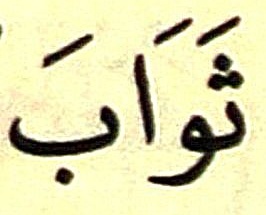 ثَوَابَ